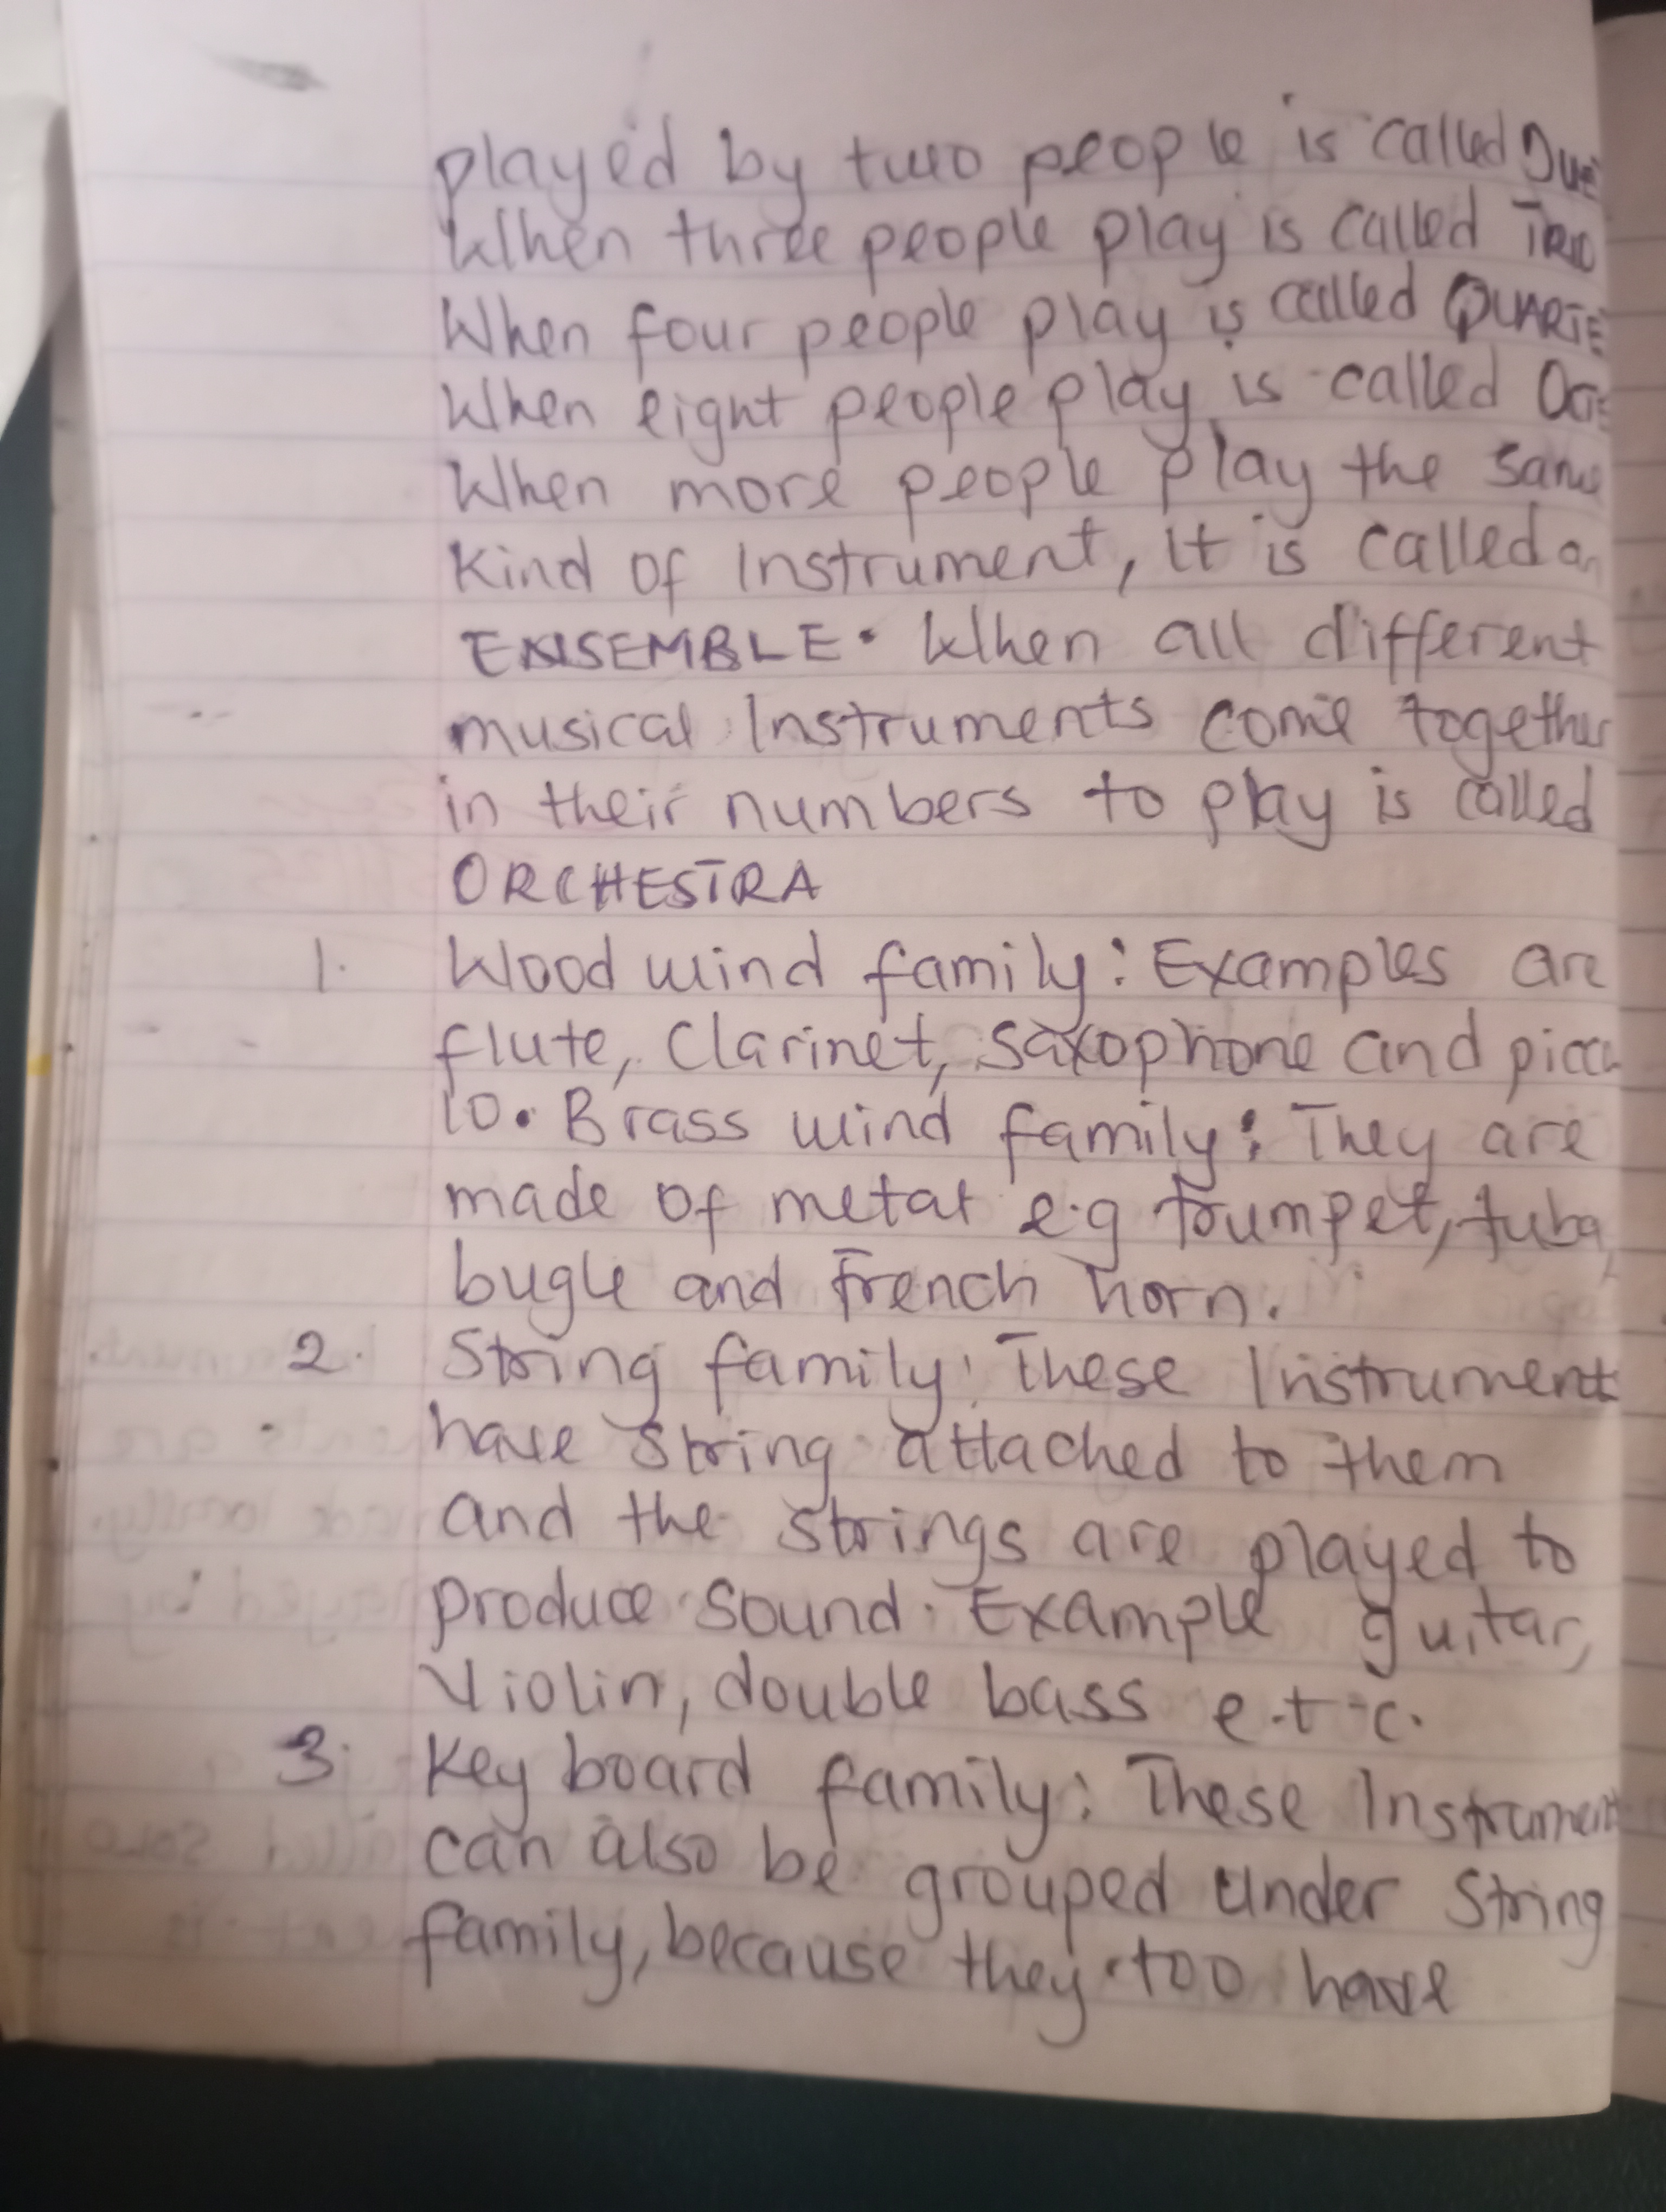 played by two people is called Due
When three people play is called TRIO
When four people play is called QUARTE
When eight people play is called Oct
When more people play the same
Kind of Instrument, it is called an
ENSEMBLE. When all different
musical Instruments come together
in their numbers to play is called
ORCHESTRA
1. Wood wind family: Examples are
flute, Clarinet, Saxophone and picco
lo. Brass wind family: They are
made of metal e.g trumpet, tuba,
bugle and French horn.
2. String family: These Instrument
have String attached to them
and the strings are played to
produce sound. Example guitar,
Violin, double bass e.t.c.
3. Key board family: These Instrument
can also be grouped under String
family, because they too have